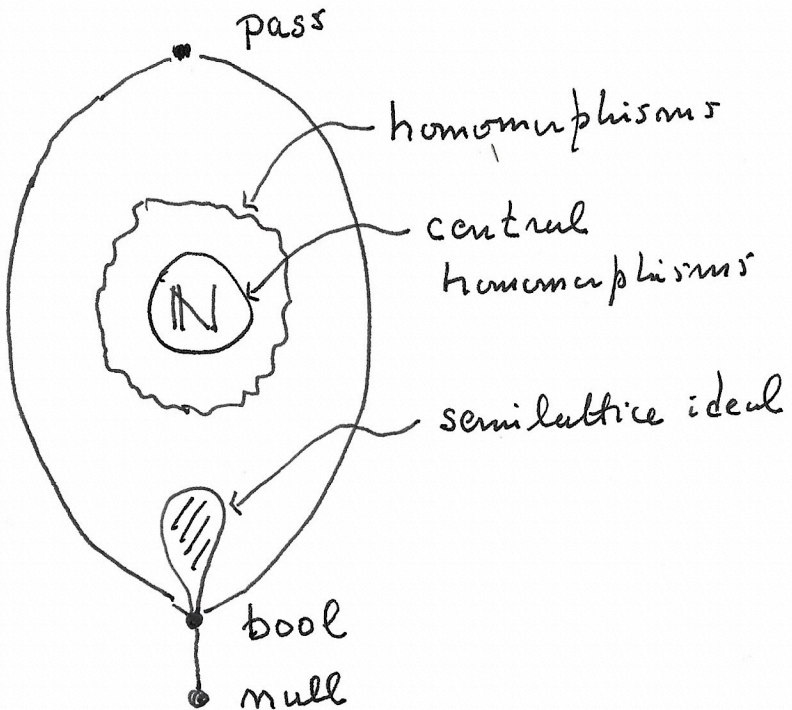 pass
homomorphisms
central
homomorphisms
ℕ
semilattice ideal
bool
null